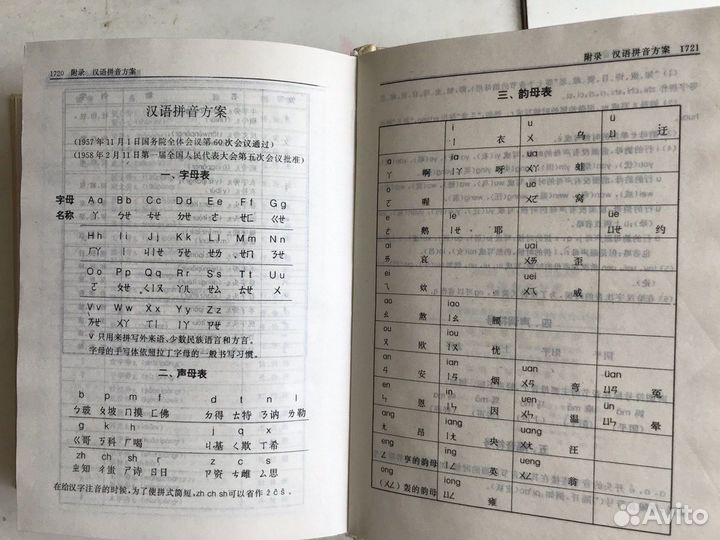 1720 附录 汉语拼音方案
汉语拼音方案
(1957年11月1日国务院全体会议第60次会议通过)
(1958年2月11日第一届全国人民代表大会第五次会议批准)
一、字母表
字母 Aa Bb Cc Dd Ee Ff Gg
名称 ㄚ ㄅㄝ ㄘㄝ ㄉㄝ ㄜ ㄝㄈ ㄍㄝ
Hh Ii Jj Kk Ll Mm Nn
ㄏㄚ ㄧ ㄐㄧㄝ ㄎㄝ ㄝㄌ ㄝㄇ ㄋㄝ
Oo Pp Qq Rr Ss Tt Uu
ㄛ ㄆㄝ ㄑㄧㄡ ㄚㄦ ㄝㄙ ㄊㄝ ㄨ
Vv Ww Xx Yy Zz
ㄪㄝ ㄨㄚ ㄒㄧ ㄧㄚ ㄗㄝ
v 只用来拼写外来语、少数民族语言和方言。
字母的手写体依照拉丁字母的一般书写习惯。
二、声母表
b p m f d t n l
ㄅ玻 ㄆ坡 ㄇ摸 ㄈ佛 ㄉ得 ㄊ特 ㄋ讷 ㄌ勒
g k h j q x
ㄍ哥 ㄎ科 ㄏ喝 ㄐ基 ㄑ欺 ㄒ希
zh ch sh r z c s
ㄓ知 ㄔ蚩 ㄕ诗 ㄖ日 ㄗ资 ㄘ雌 ㄙ思
在给汉字注音的时候,为了使拼式简短,zh ch sh可以省作 ẑ ĉ ŝ。
附录 汉语拼音方案 1721
三、韵母表
i u ü
ㄧ 衣 ㄨ 乌 ㄩ 迂
a ia ua
ㄚ 啊 ㄧㄚ 呀 ㄨㄚ 蛙
o uo
ㄛ 喔 ㄨㄛ 窝
e ie üe
ㄜ 鹅 ㄧㄝ 耶 ㄩㄝ 约
ai uai
ㄞ 哀 ㄨㄞ 歪
ei uei
ㄟ 欸 ㄨㄟ 威
ao iao
ㄠ 熬 ㄧㄠ 腰
ou iou
ㄡ 欧 ㄧㄡ 忧
an ian uan üan
ㄢ 安 ㄧㄢ 烟 ㄨㄢ 弯 ㄩㄢ 冤
en in uen ün
ㄣ 恩 ㄧㄣ 因 ㄨㄣ 温 ㄩㄣ 晕
ang iang uang
ㄤ 昂 ㄧㄤ 央 ㄨㄤ 汪
eng ing ueng
ㄥ 亨的韵母 ㄧㄥ 英 ㄨㄥ 翁
ong iong
(ㄨㄥ) 轰的韵母 ㄩㄥ 雍
Avito